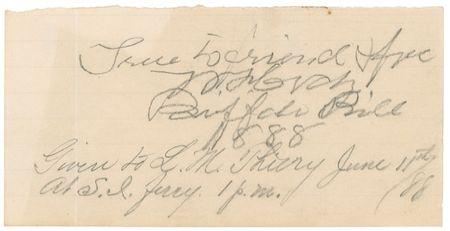 True to friend & foe
W. F. Cody
Buffalo Bill
1888
Given to L. M. Thiery June 11th/88
At S. I. ferry. 1 p.m.